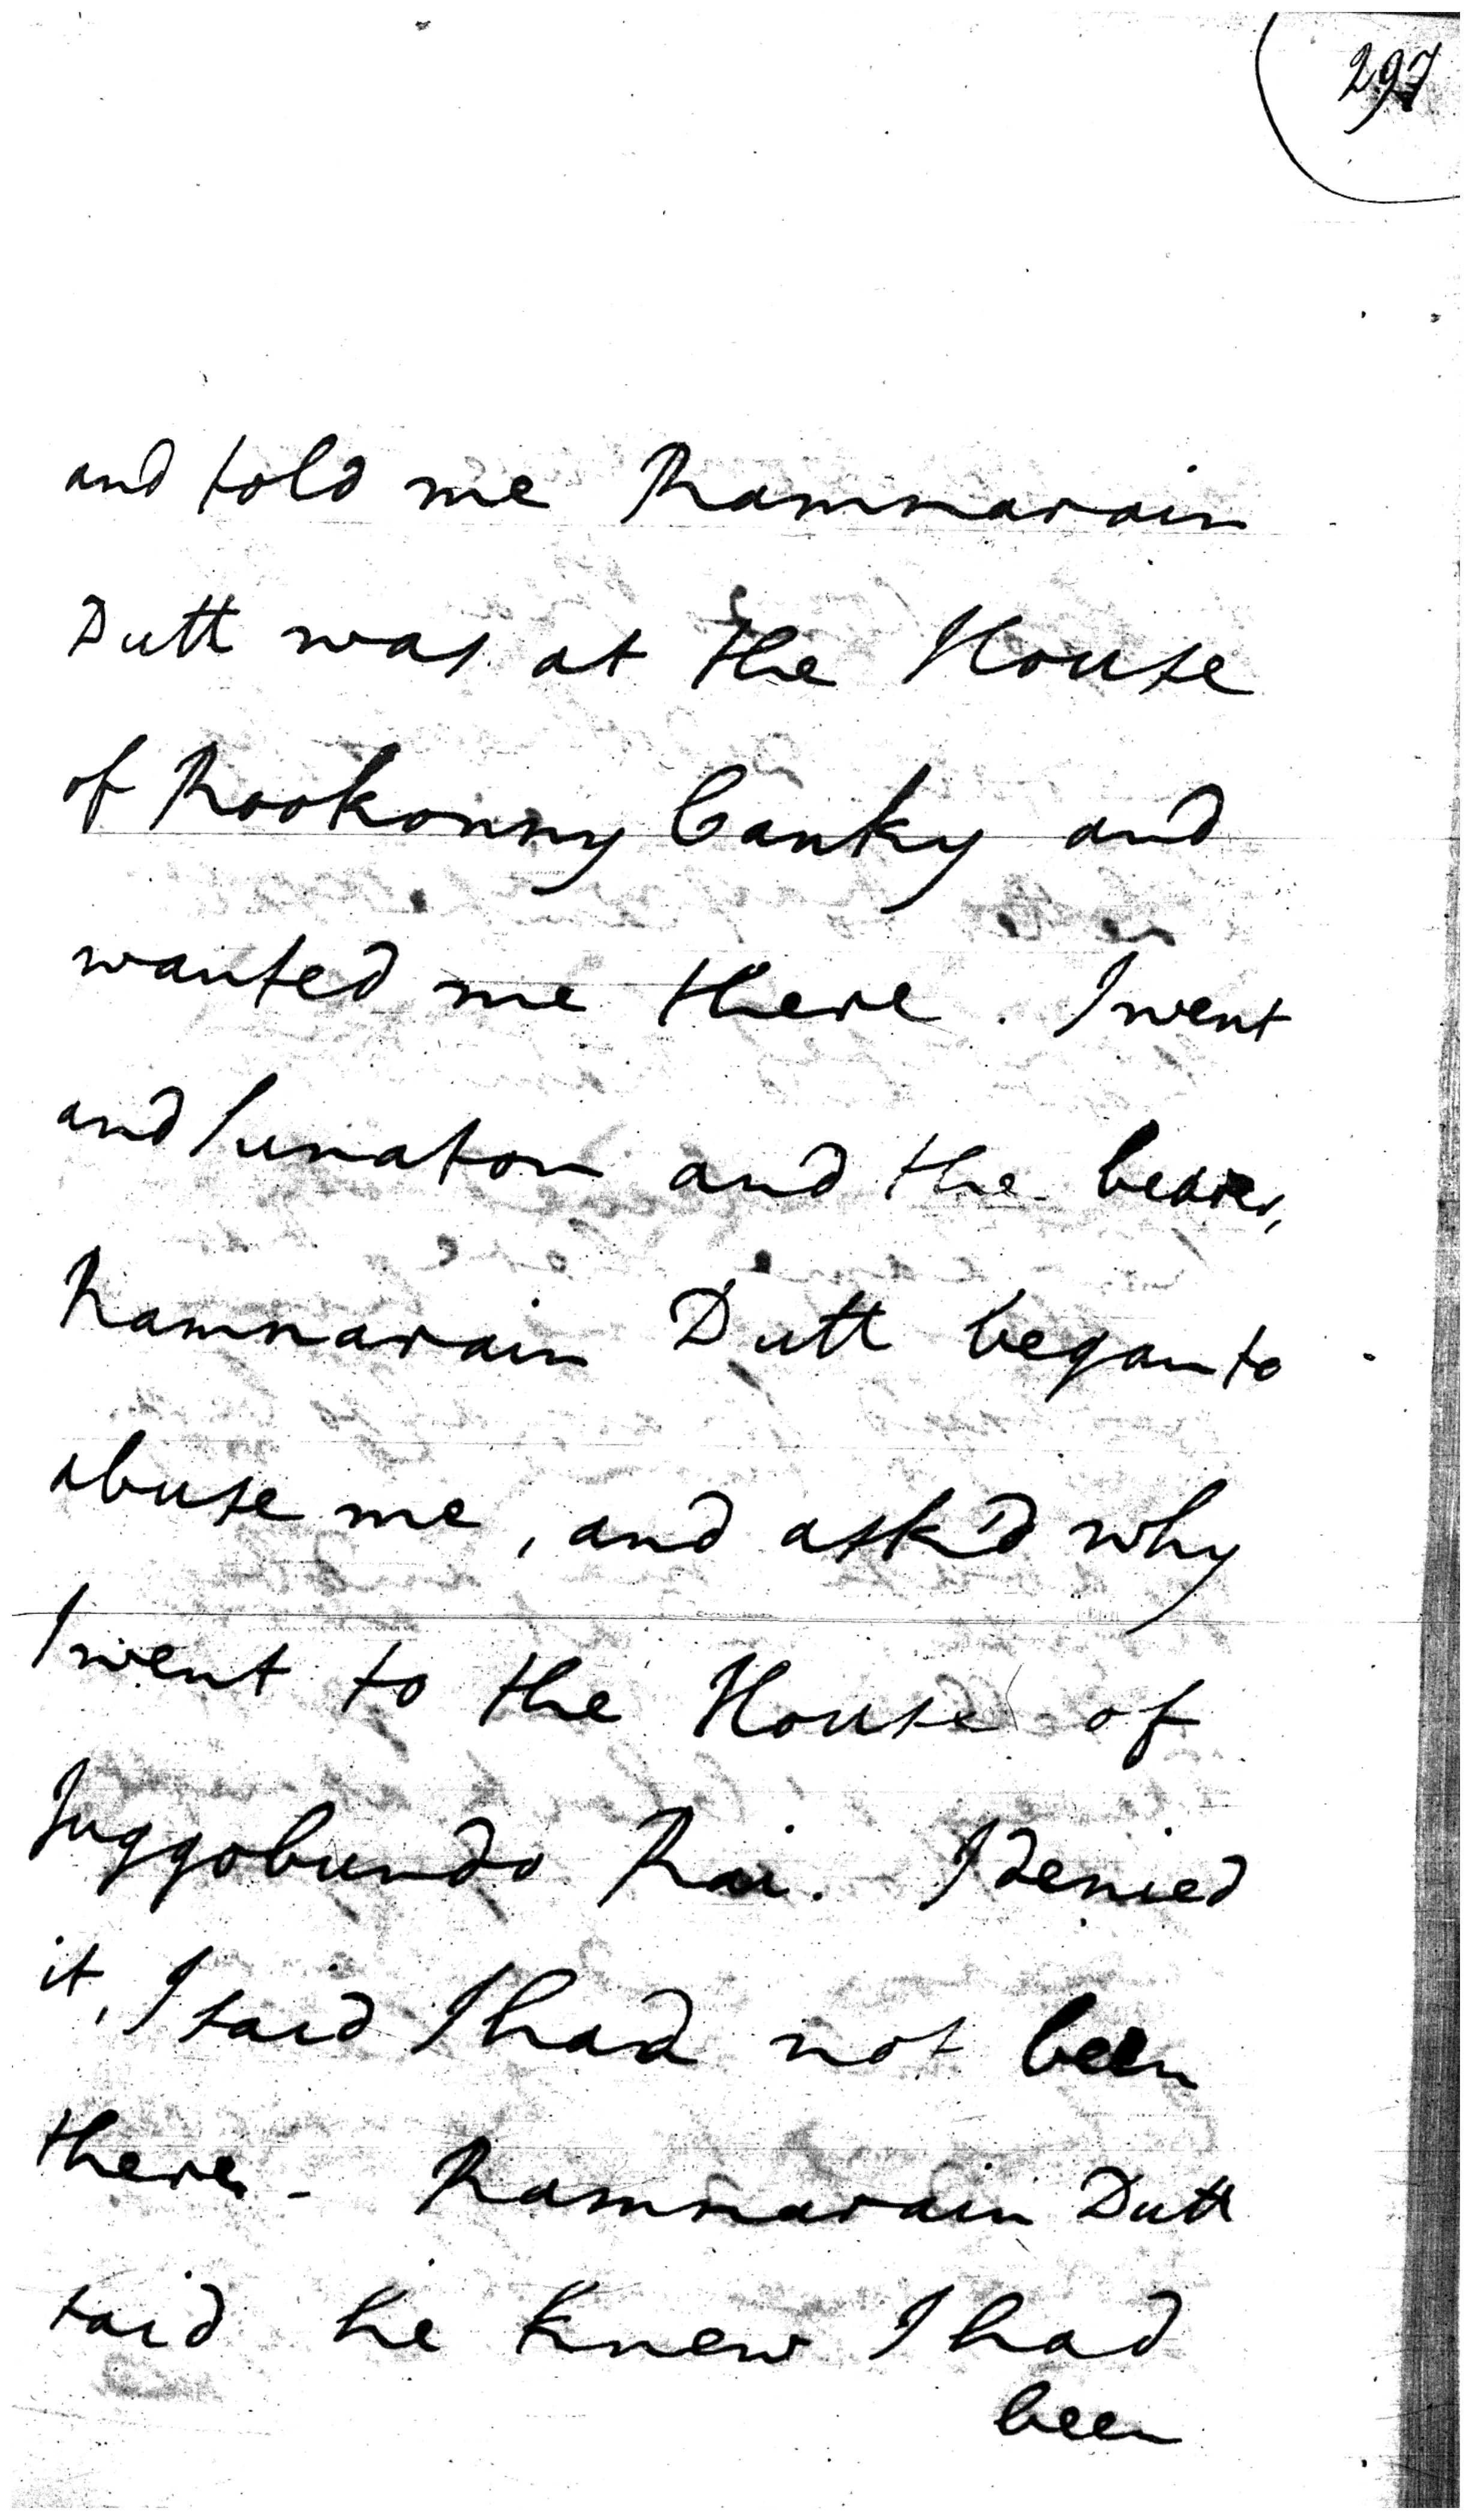 297
and told me Ramnarain
Dutt was at the House
of Rookonny Canky and
wanted me there. I went
and Sunaton and the bearer,
Ramnarain Dutt began to
abuse me, and ask'd why
I went to the House of
Juggobundo Rai. I denied
it, I said I had not been
there - Ramnarain Dutt
said he knew I had
been